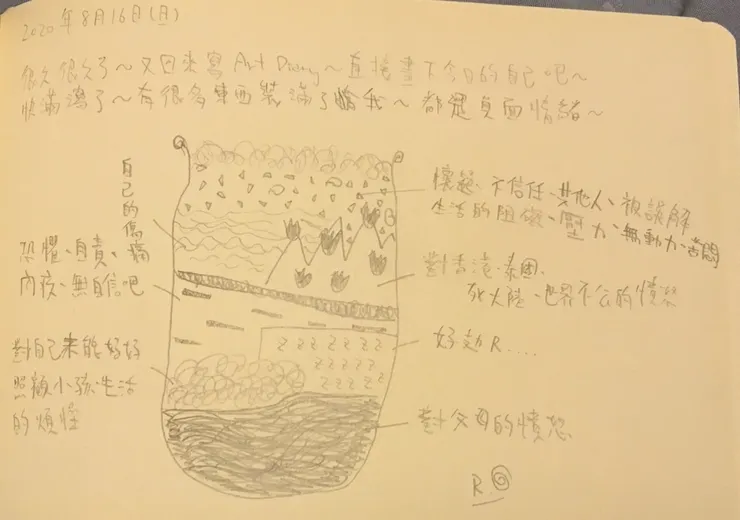 2020年8月16日(日)
很久很久了～又回來寫Art Diary～直接畫下今日的自己吧～
快滿瀉了～有很多東西裝滿了我～都是負面情緒～
自己的傷痛
懷疑、不信任、其他人、被誤解
生活的阻礙、壓力、無動力、苦悶
恐懼、自責、
內疚、無自信吧
對香港、泰國、
世界不公的憤怒
對自己未能好好
照顧小孩、生活
的煩惱
好劫R....
對父母的憤怒
R.